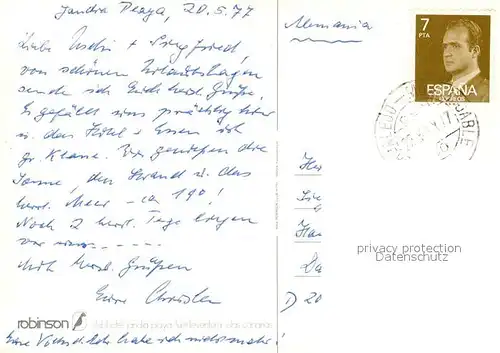 Jandia Playa, 20.5.77
Alemania
7
PTA
ESPAÑA
CORREOS
Liebe + Siegfried,
von schönen Urlaubstagen
sende ich Euch herzl. Grüße.
Es gefällt uns prächtig hier
u. das Hotel + Essen ist
gr. Klasse. Wir genießen die
Sonne, den Strand u. das
herrl. Meer - ca 19°!
Noch 2 herrl. Tage liegen
vor uns - - - - -
Mit herzl. Grüßen
Eure
privacy protection
DATENSCHUTZ
D 20
robinson
club hotel jandia playa fuerteventura islas canarias
Eine habe ich nicht mehr!